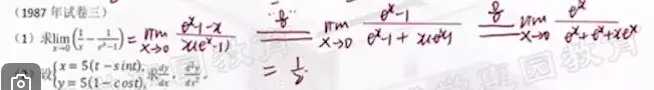 (1987年试卷三)
(1) 求lim x→0 (1/x - 1/(e^x-1)) = lim x→0 (e^x-1-x)/(x(e^x-1)) = "0/0" = lim x→0 (e^x-1)/(e^x-1+xe^x) = 0/0 = lim x→0 e^x/(e^x+e^x+xe^x)
= 1/2
设{x = 5(t - sint), y = 5(1 - cost), 求 dy/dx, d²y/dx².